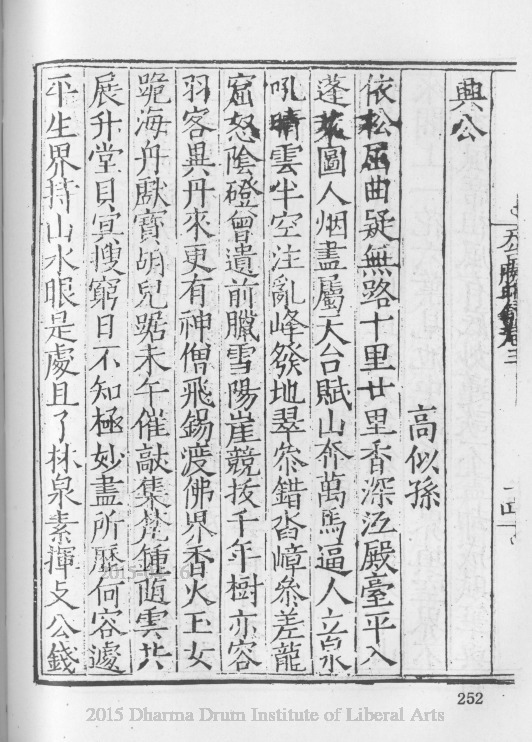 興公
高似孫
依松屈曲疑無路十里廿里香深沉殿臺平入
蓬萊圖人烟盡屬天台賦山奔萬馬逼人立泉
吼晴雲半空注亂峰發地翠叅錯沓嶂叅差龍
窟怒陰磴曾遺前臘雪陽崖競抜千年樹亦容
羽客異丹來更有神僧飛錫渡佛界香火玉女
跪海丹獻寳胡兒踞未午催敲集梵鍾随雲共
展升堂具㝠搜窮日不知極妙盡所歷何容遽
平生界持山水眼是處且了林泉素揮攴公錢
252
2015 Dharma Drum Institute of Liberal Arts